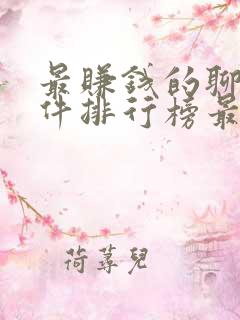 最賺錢的聊
件排行榜最
荷蕁兒